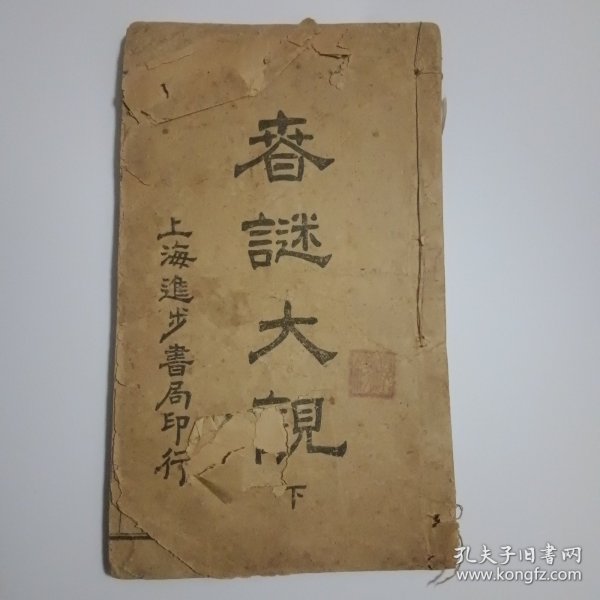 春謎大觀
下
上海進步書局印行
孔夫子旧书网
www.kongfz.com